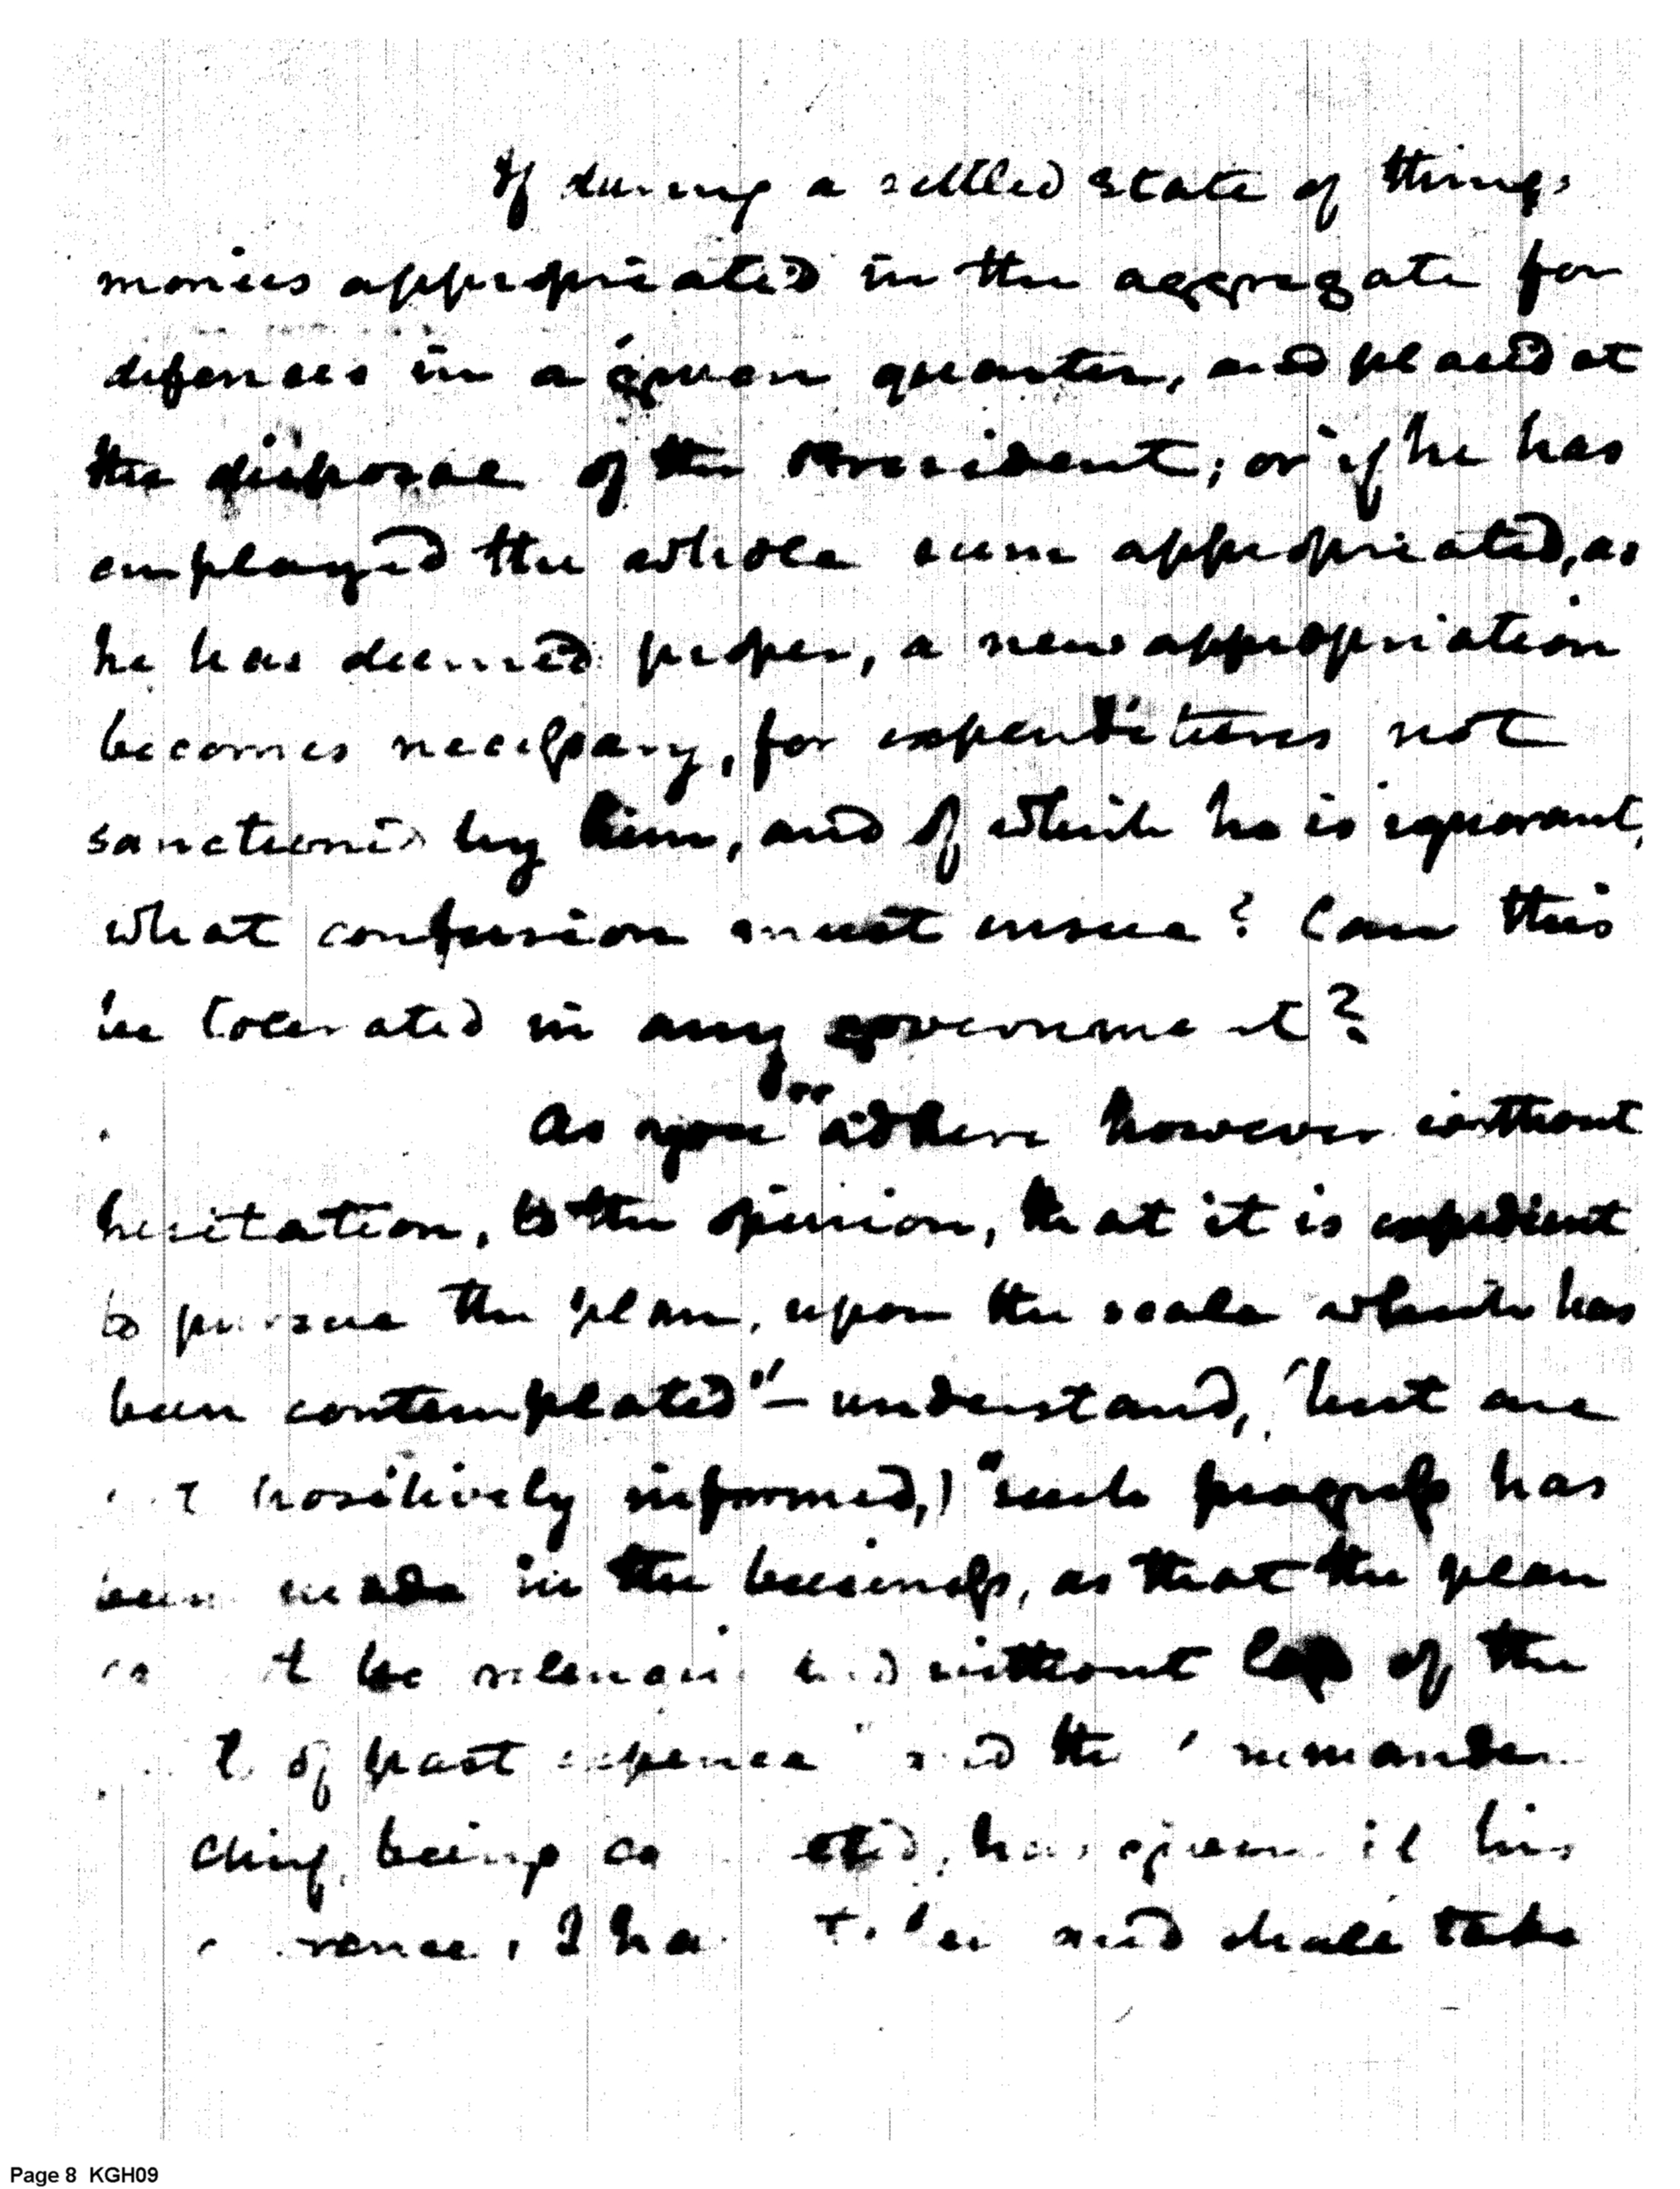 If during a settled state of things
monies appropriated in the aggregate for
defences in a given quarter, and placed at
the disposal of the President; or if he has
employed the whole sum appropriated, as
he has deemed proper, a new appropriation
becomes necessary, for expenditures not
sanctioned by him, and of which he is ignorant,
what confusion must ensue? Can this
be tolerated in any government?
As you adhere however without
hesitation, to the opinion, that it is expedient
to pursue the plan, upon the scale which has
been contemplated" – understand, but are
positively informed,) "such progress has
been made in the business, as that the plan
be without loss of the
of past expence" and the
Chief, being has given it his
I ha and shall take
Page 8 KGH09